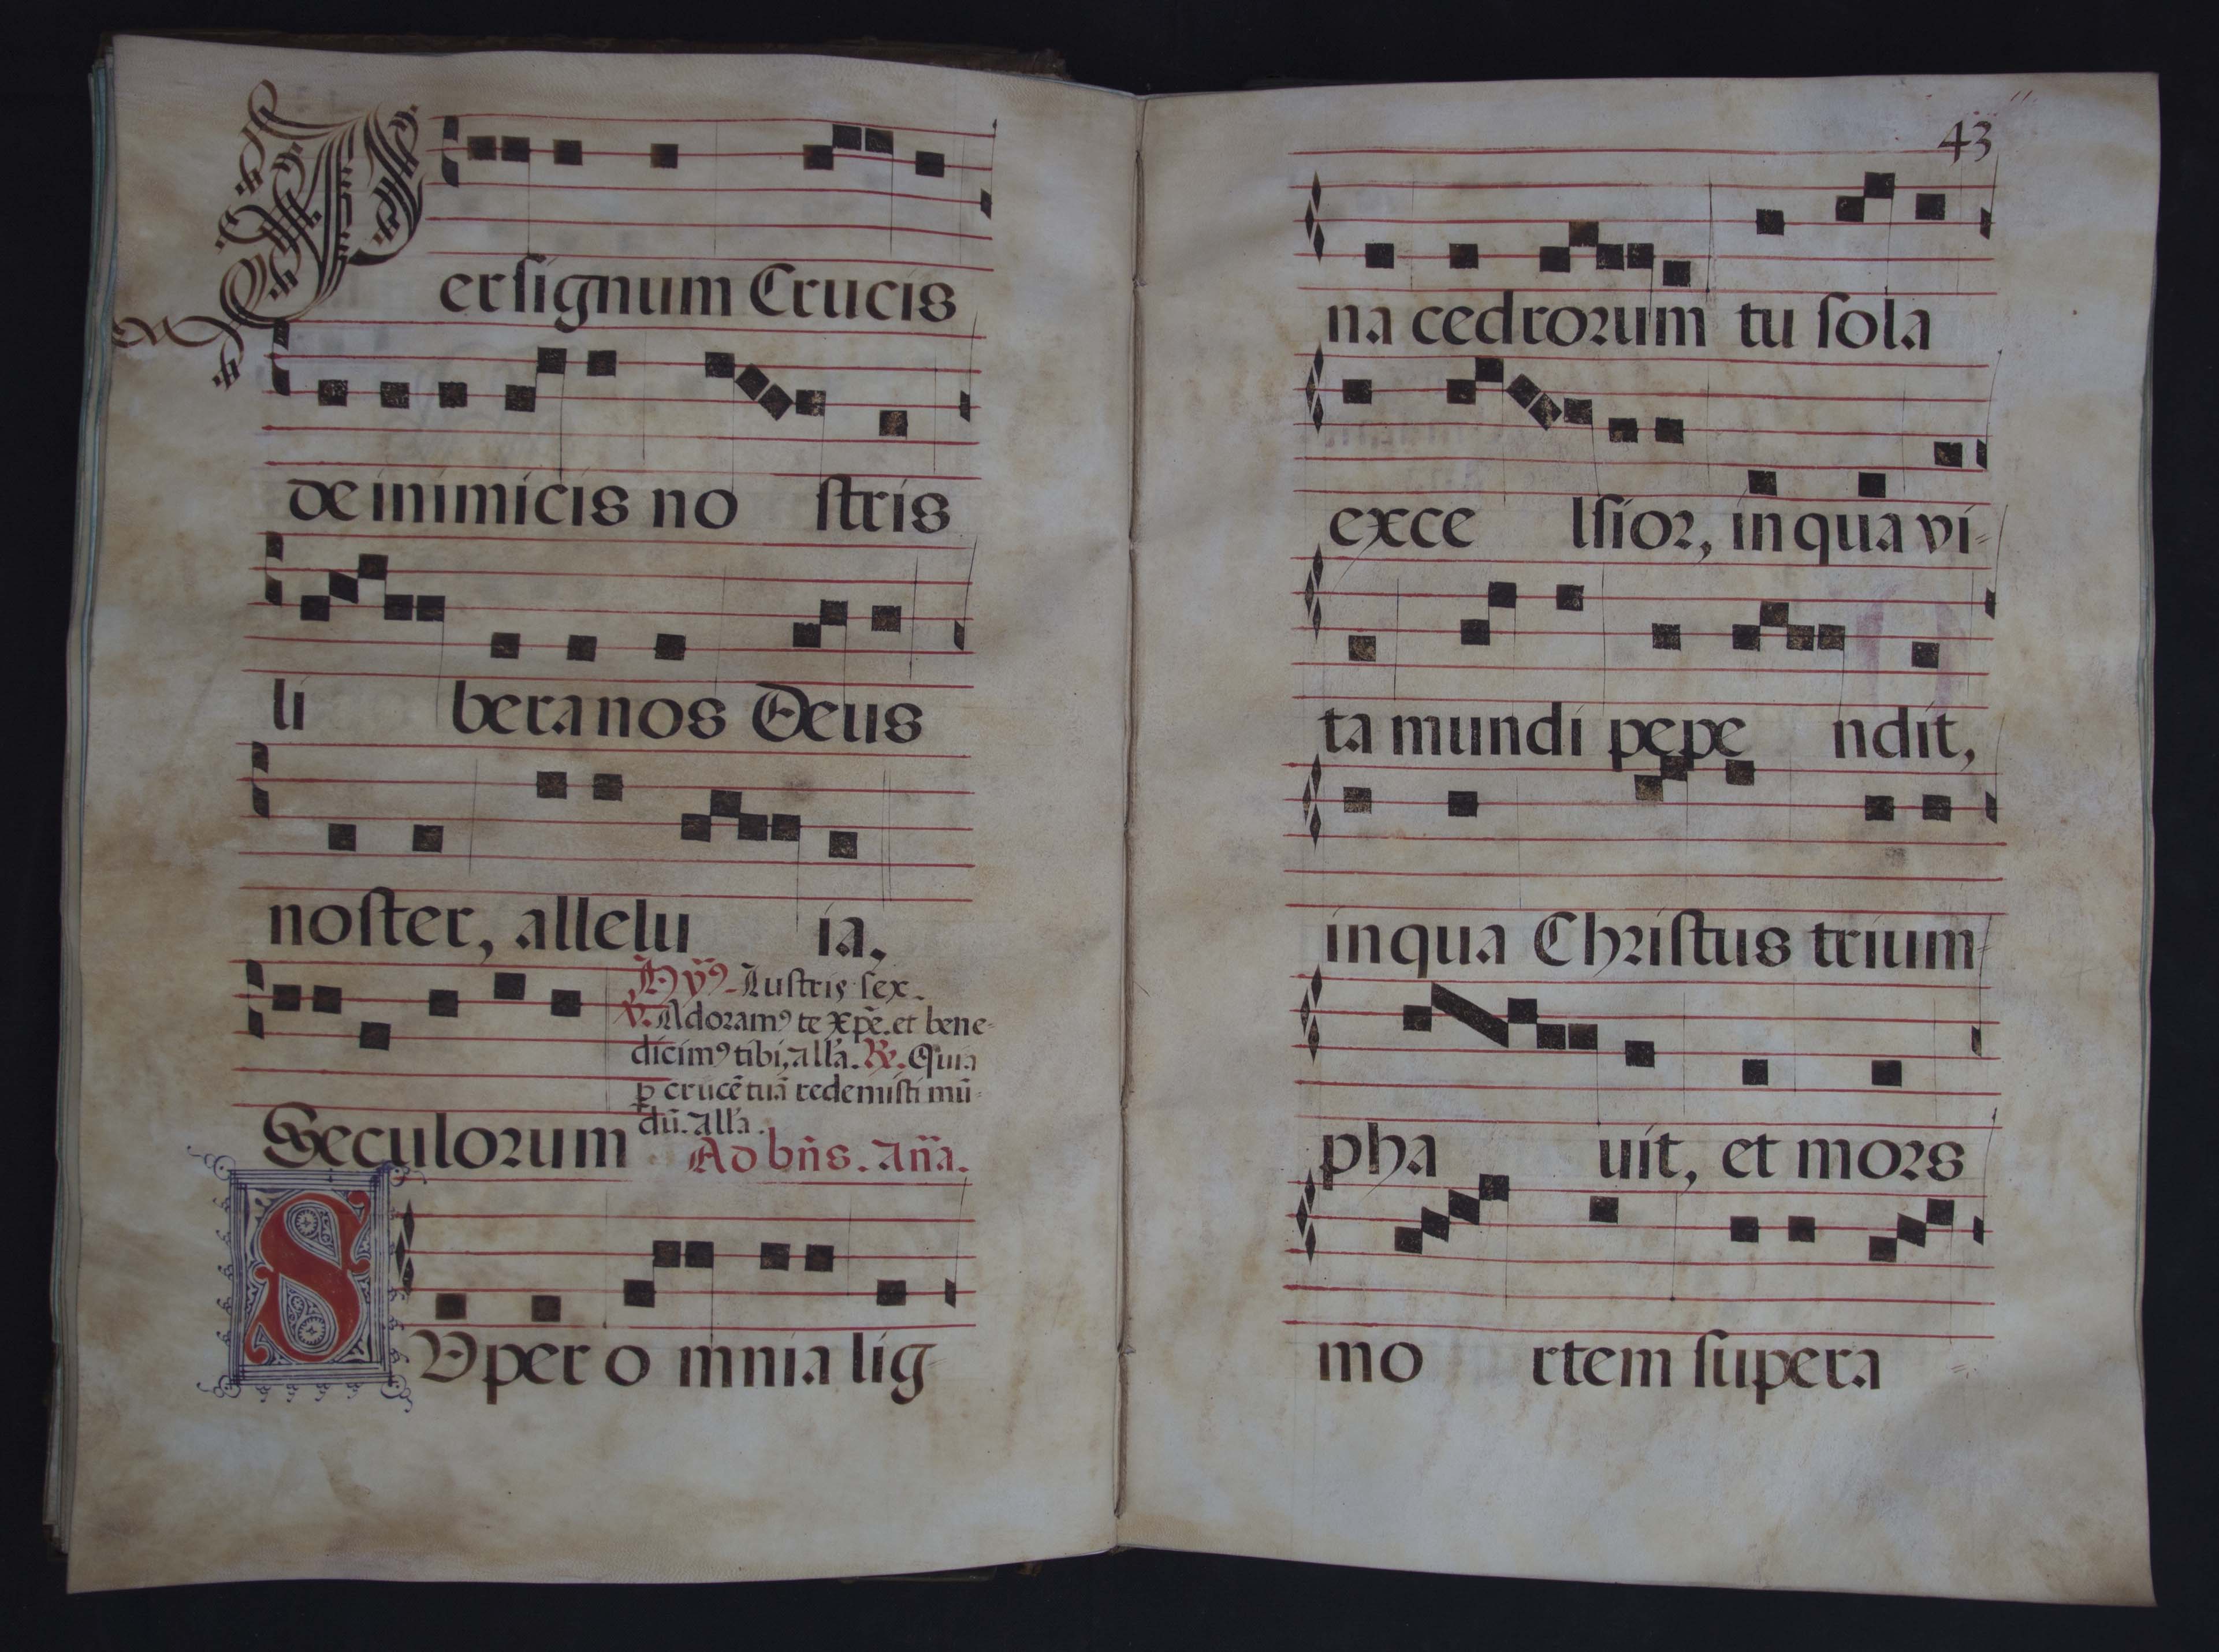 Per signum Crucis
de inimicis no stris
li bera nos Deus
noster, allelu ia.
Hỹ⁹. Lustris sex.
℣. Adoram⁹ te Xp̄e. et bene-
dicim⁹ tibi, all'a. ℟. Quia
ꝑ crucē tuā redemisti mū-
dū. all'a.
Seculorum
Ad bn̄s. an̄a.
SVper o mnia lig-
43
na cedrorum tu sola
exce lsior, in qua vi-
ta mundi pepe ndit,
in qua Christus trium-
pha uit, et mors
mo rtem supera-